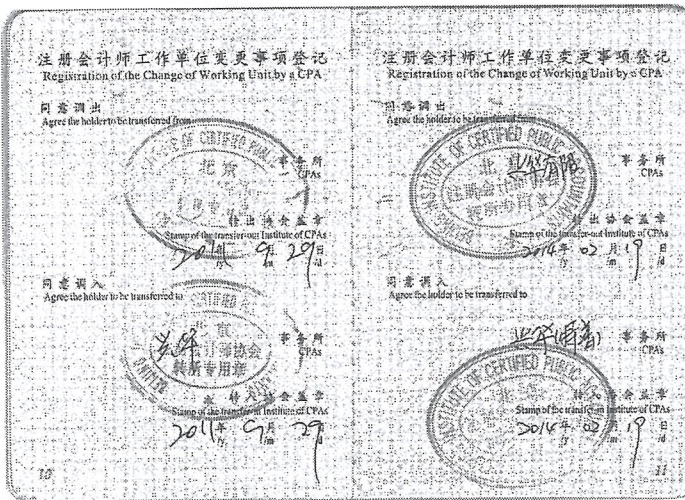 注册会计师工作单位变更事项登记
Registration of the Change of Working Unit by a CPA
同意调出
Agree the holder to be transferred from
事务所
CPAs
转出协会盖章
Stamp of the transfer-out Institute of CPAs
2011年 9月 29日
/y /m /d
同意调入
Agree the holder to be transferred to
事务所
CPAs
转入协会盖章
Stamp of the transfer-in Institute of CPAs
2011年 9月 29日
/y /m /d
10
注册会计师工作单位变更事项登记
Registration of the Change of Working Unit by a CPA
同意调出
Agree the holder to be transferred from
事务所
CPAs
转出协会盖章
Stamp of the transfer-out Institute of CPAs
2014年 02月 19日
/y /m /d
同意调入
Agree the holder to be transferred to
事务所
CPAs
转入协会盖章
Stamp of the transfer-in Institute of CPAs
2014年 02月 19日
/y /m /d
11